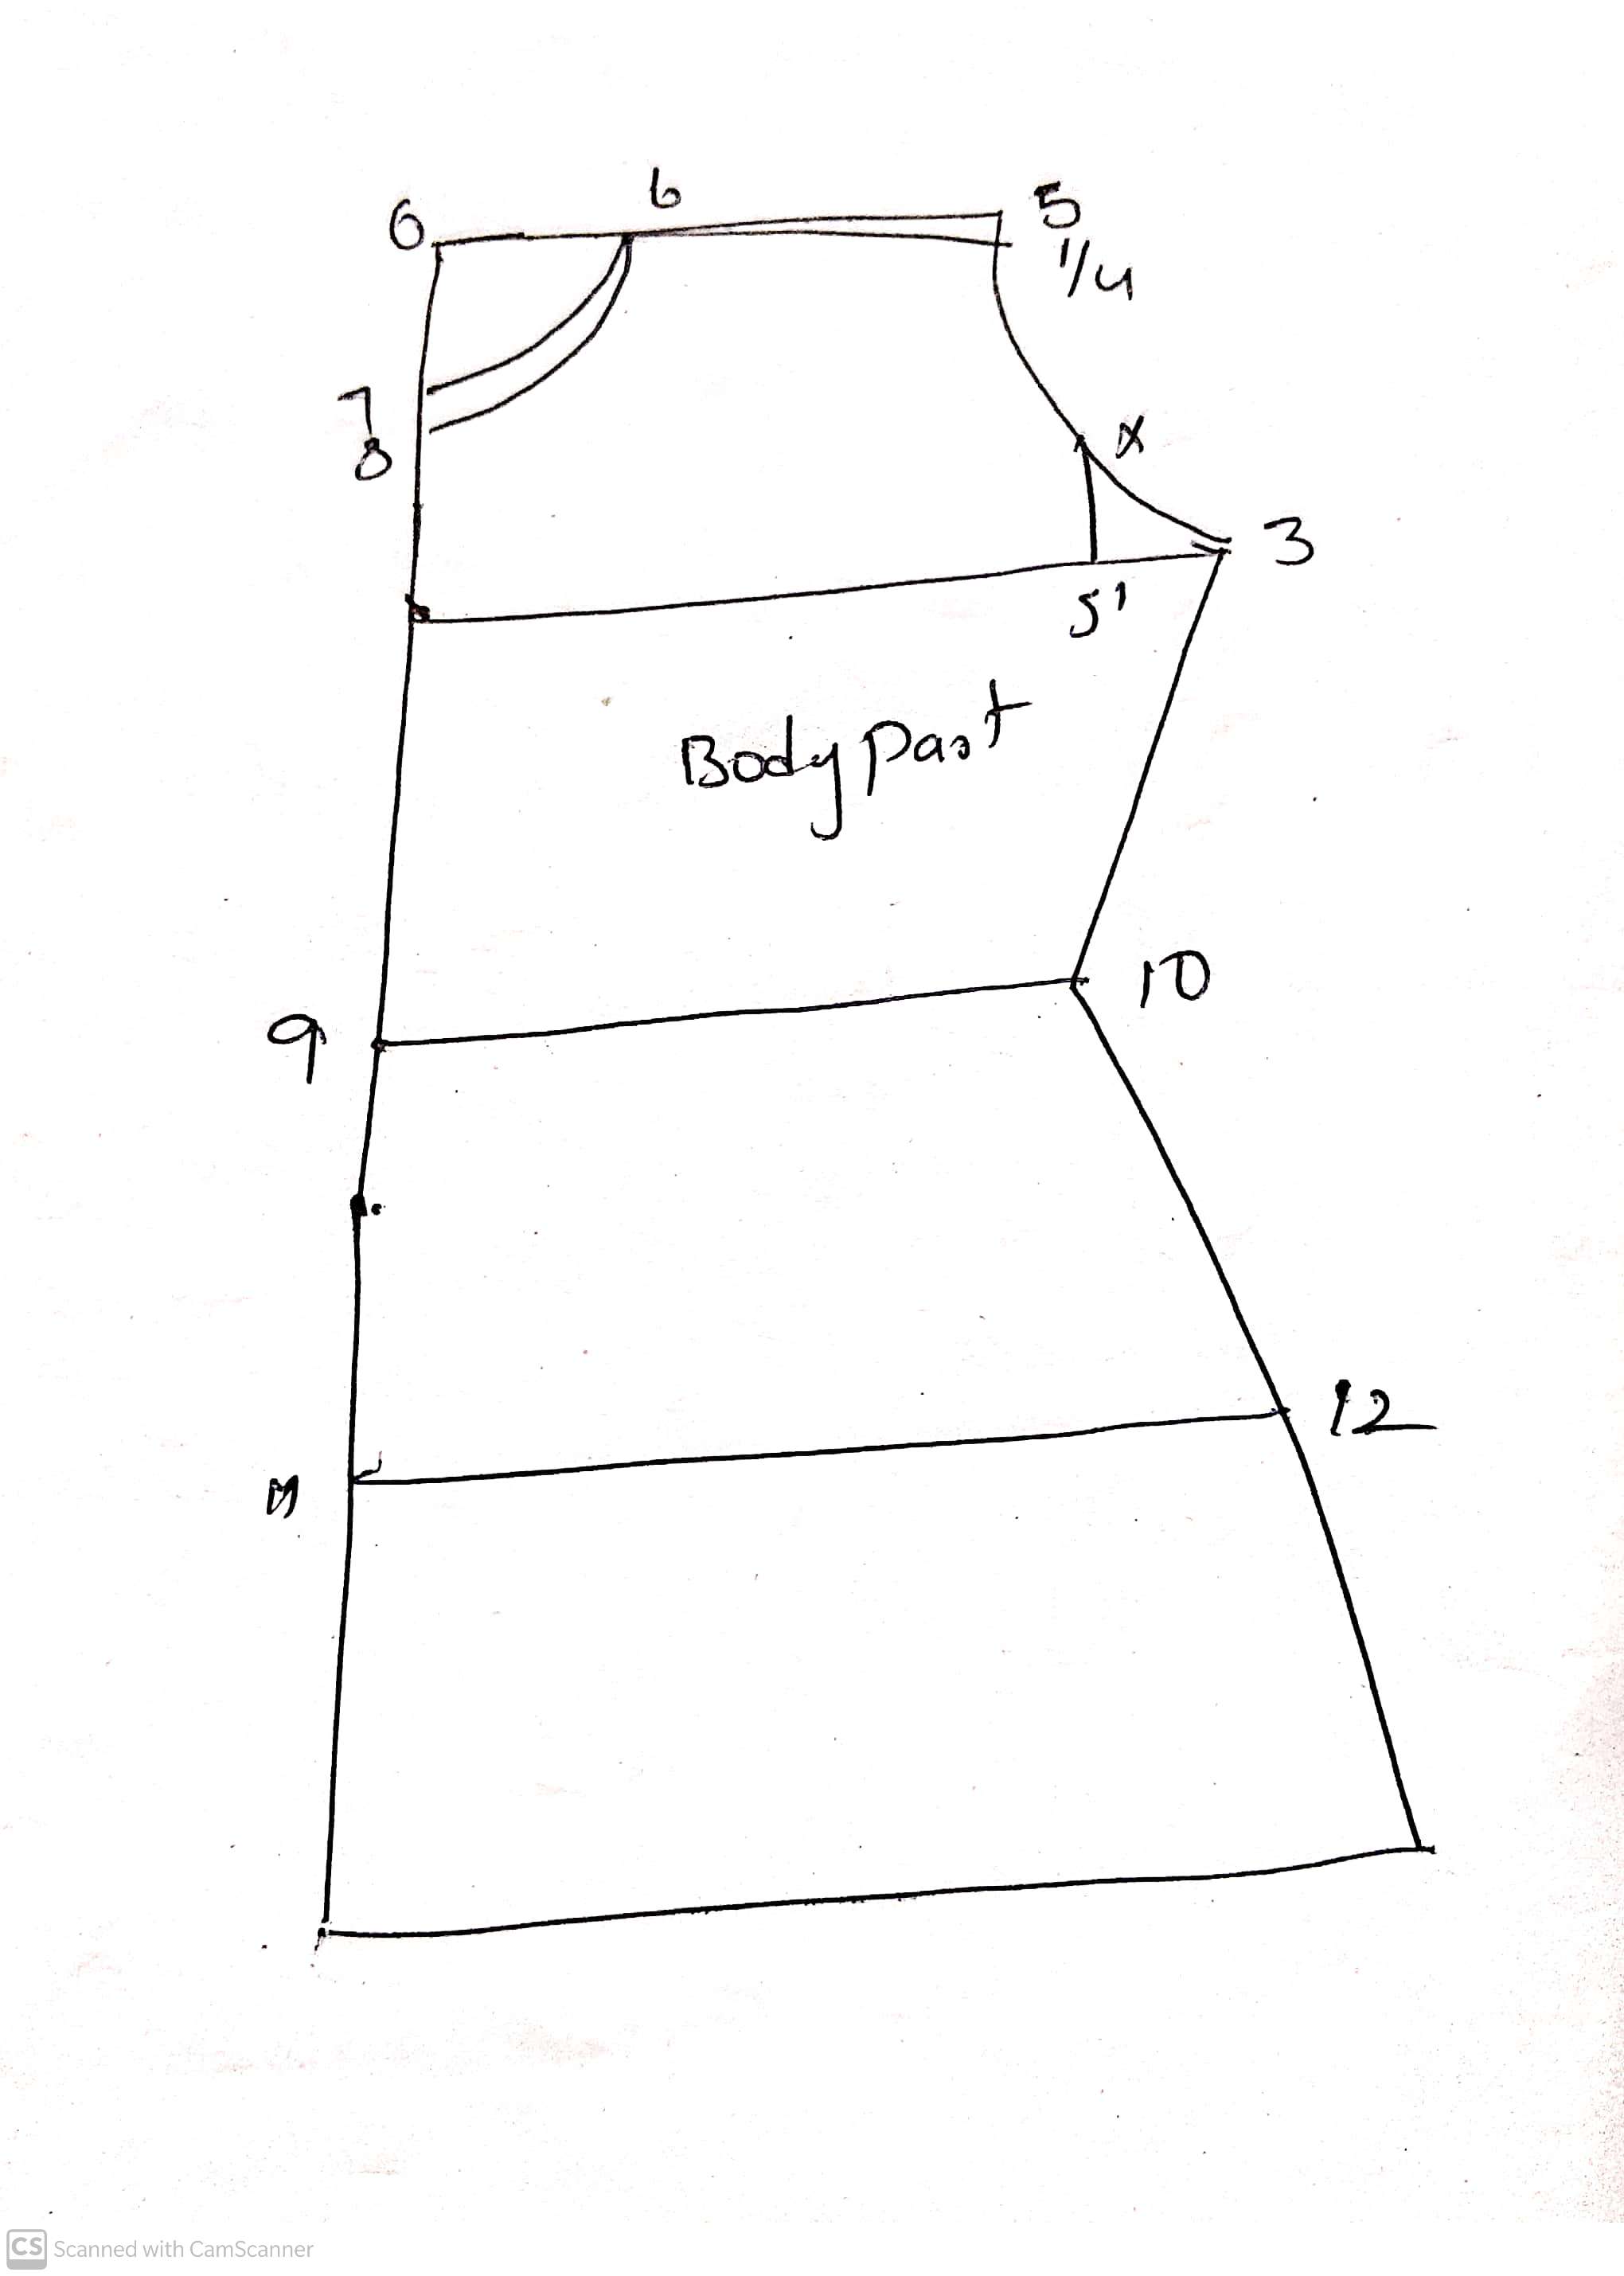 6
0
5
1/4
7
8
x
3
5'
Body Part
10
9
12
11
CS Scanned with CamScanner